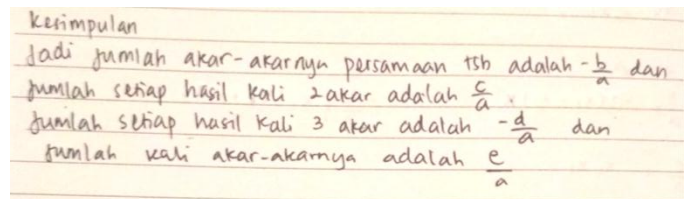 Kesimpulan
Jadi jumlah akar-akarnya persamaan tsb adalah -b/a dan
jumlah setiap hasil kali 2 akar adalah c/a.
Jumlah setiap hasil kali 3 akar adalah -d/a dan
jumlah kali akar-akarnya adalah e/a